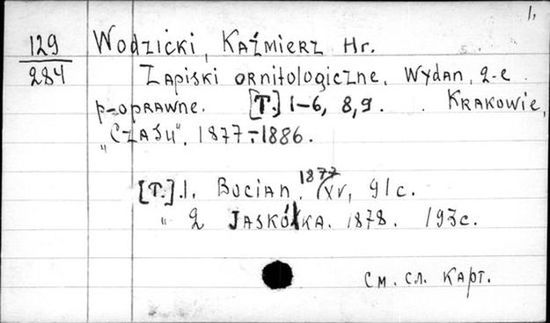 1.
129
284
Wodzicki, Kaźmierz Hr.
Zapiski ornitologiczne. Wydan. 2-e
p-oprawne. [T.] 1-6, 8,9. . Krakowie,
"Czasu". 1877-1886.
[T.] 1. Bocian. 1877. XV, 91 c.
" 2 Jaskółka. 1878. 193 c.
См. сл. карт.